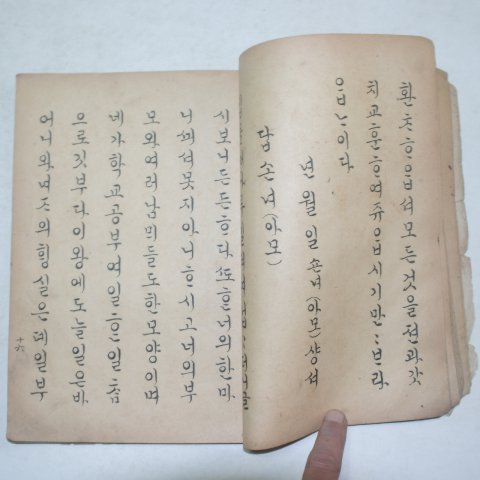 환ᄎᆞᄒᆞ옵셔모든것을젼과갓
치교훈ᄒᆞ여쥬옵시기만ᄇᆞ라
옵ᄂᆞ이다
년월일손녀(아모)샹셔
답손녀(아모)
시보니든든ᄒᆞ다ᄯᅩᄒᆞᆫ너의한마
니ᄭᅴ셔못지아니ᄒᆞ시고너의부
모와여러남ᄆᆡ들도한모양이며
네가학교공부여일ᄒᆞᆫ일츔
으로깃부다이왕에도늘일은바
어니와녀ᄌᆞ의ᄒᆡᆼ실은ᄆᆡ일부
十六